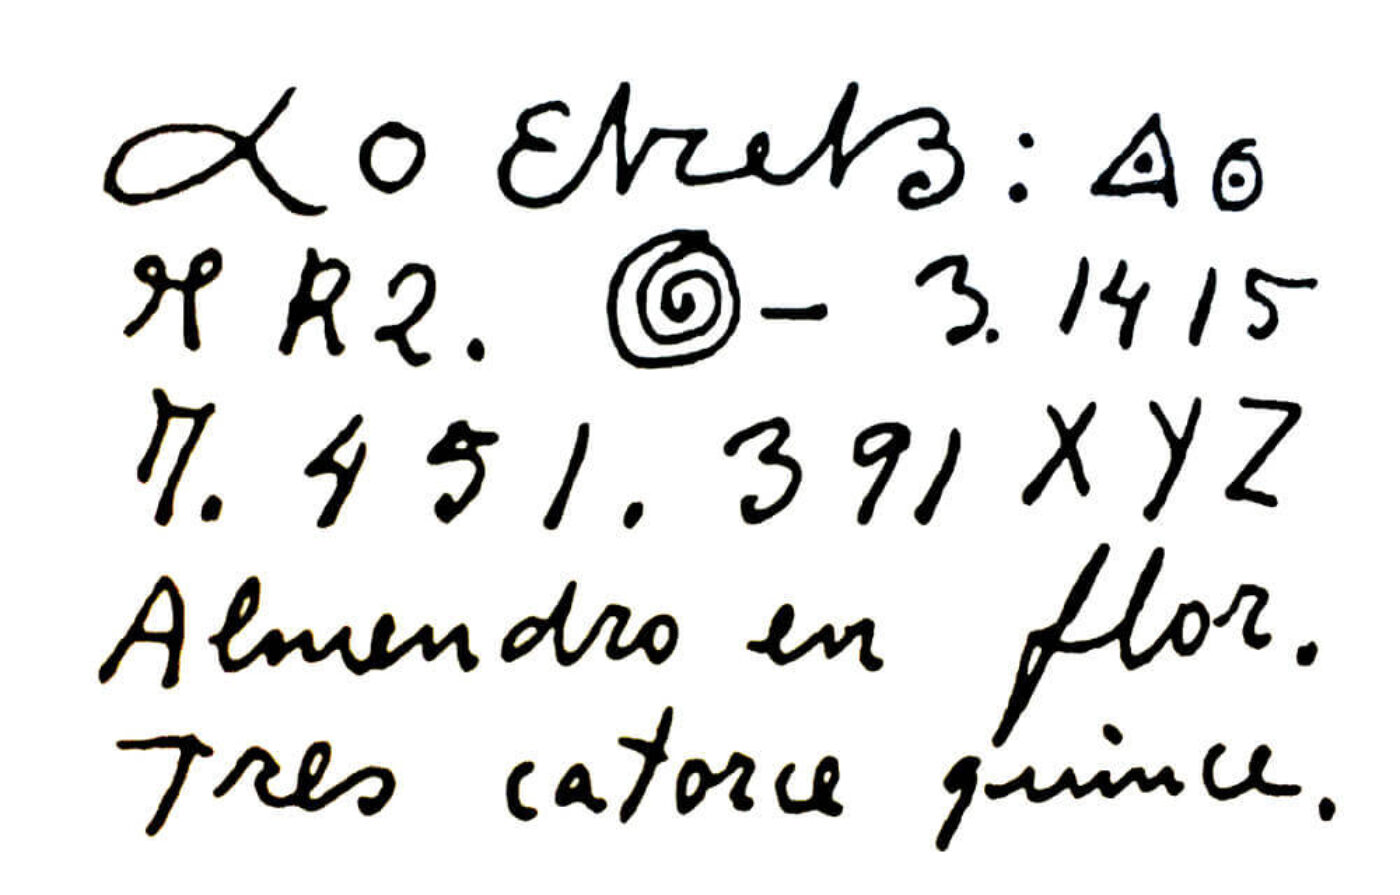 Lo : 
R2. - 3.1415
7. 451. 391 XYZ
Almendro en flor.
Tres catorce quince.